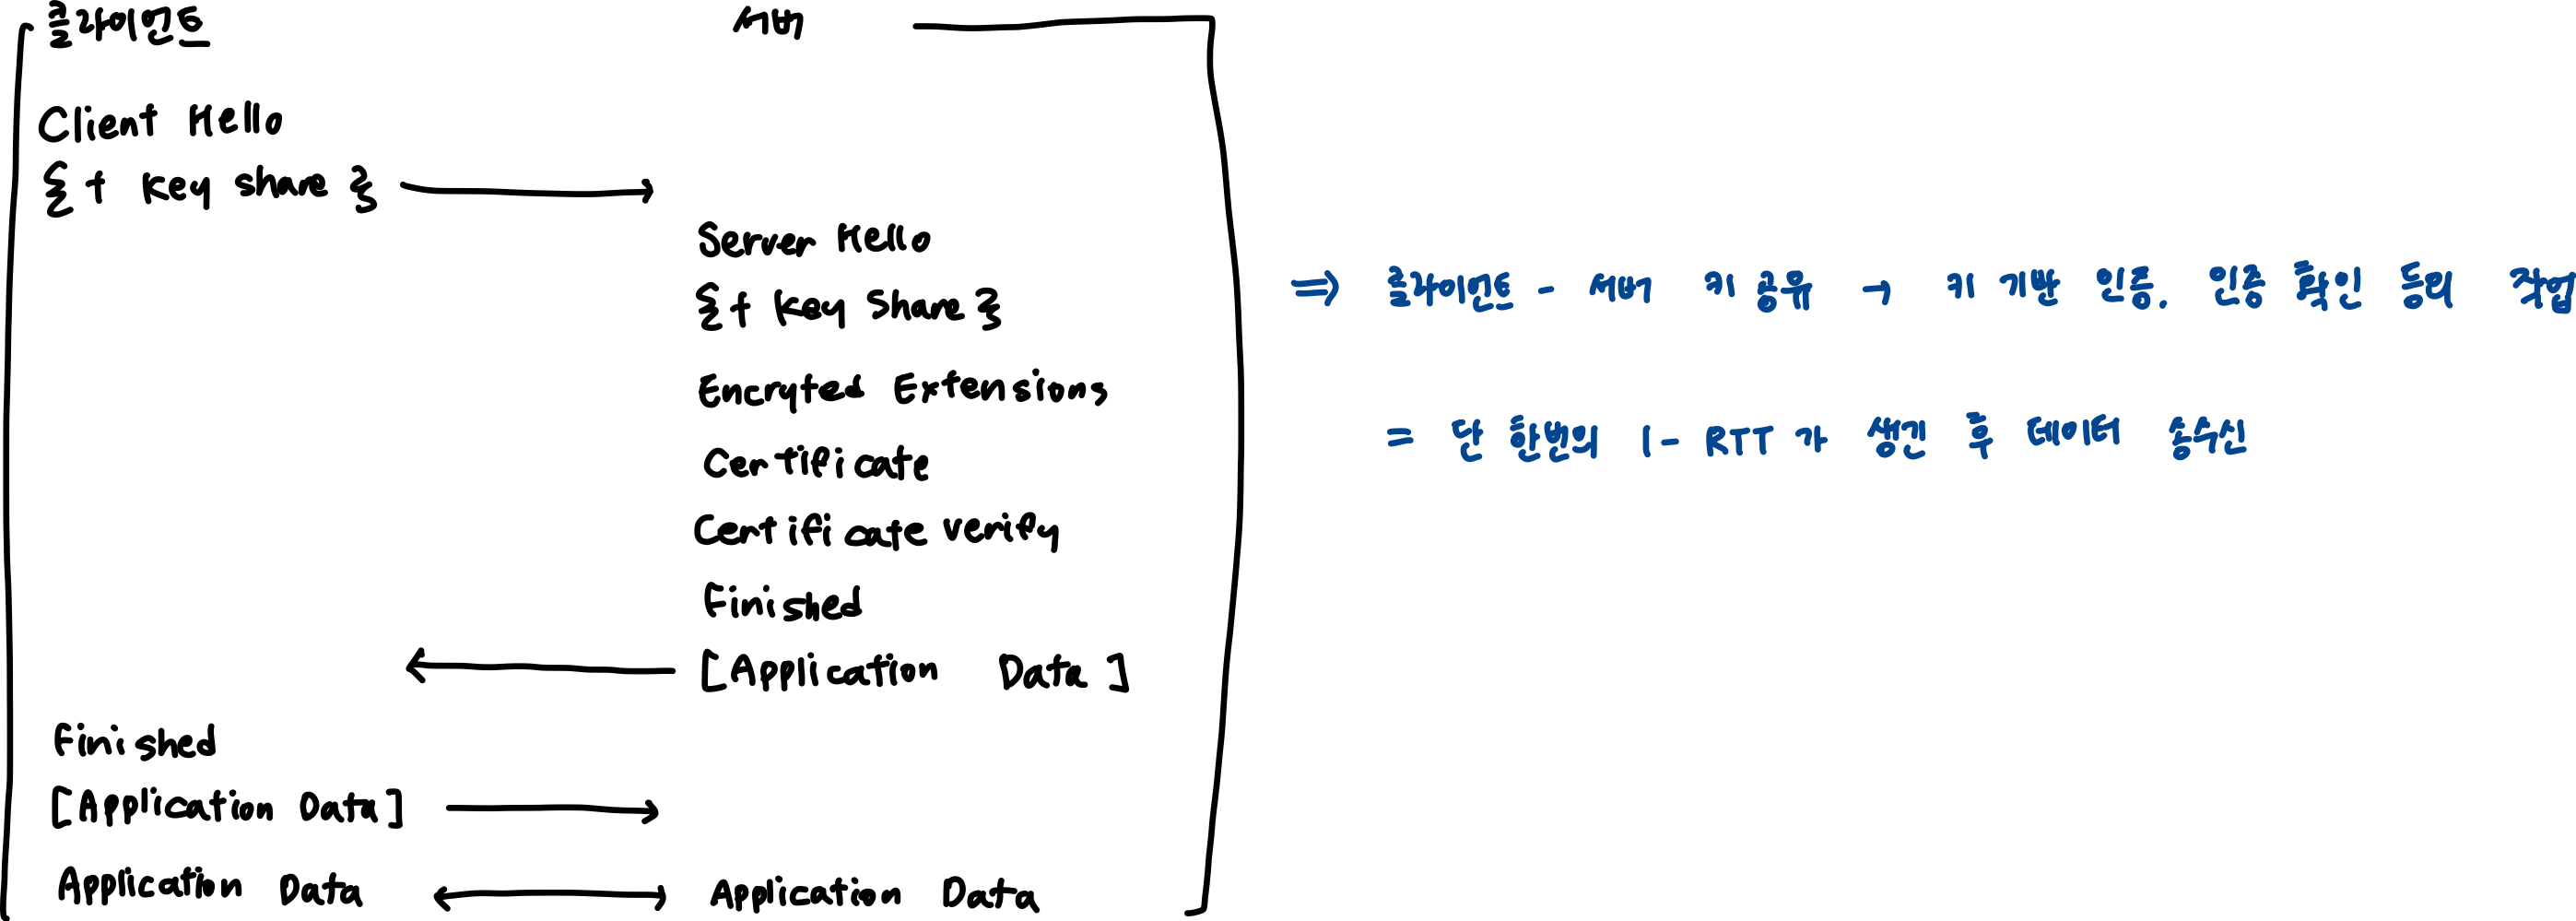 클라이언트 서버
Client Hello
{ + Key share }
Server Hello
{ + Key Share }
Encryted Extensions
Certificate
Certificate verify
Finished
[Application Data]
Finished
[Application Data]
Application Data Application Data
⇒ 클라이언트 - 서버 키 공유 → 키 기반 인증. 인증 확인 등의 작업
= 단 한번의 1-RTT가 생긴 후 데이터 송수신